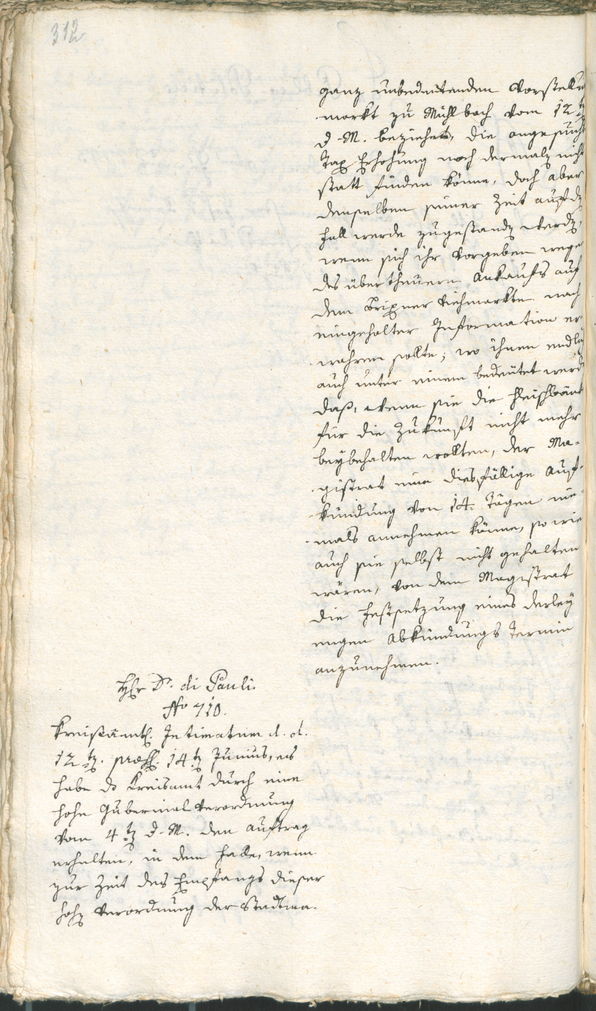 312
ganz unbedeutenden Vorstell
markt zu Mühlbach vom 12 t.
d. M. beziehet, die angesucht
Tax Erhöhung noch dermalz nich
statt finden könne, doch aber
denselben seiner Zeit auf d
fall werde zugestandz werdz,
wenn sich ihr Vorgeben wege
des übertheuern Ankaufs auf
dem Brixner Viehmarkte nach
eingeholter Information er
wahren sollte; wo ihnen endlich
auch unter einem bedeutet werd
daß, wenn sie die Fleischbank
für die Zukunft nicht mehr
beybehalten wollten, der Ma-
gistrat eine diesfällige Auf-
kündung von 14. Tägen nie
mals annehmen könne, so wie
auch sie selbst nicht gehalten
wären, von dem Magistrat
die Festsetzung eines derley
engen Abkündungs Termin
anzunehmen.
Hr. Dr. di Pauli.
No 710.
Kreisämtl. Intimatum d. d.
12 tz. præs. 14 tz Junius, es
habe ds Kreisamt durch eine
hohe Gubernial Verordnung
vom 4 tz d. M. den Auftrag
erhalten, in dem Falle, wenn
zur Zeit des Empfangs dieser
hohz Verordnung der Stadtma-